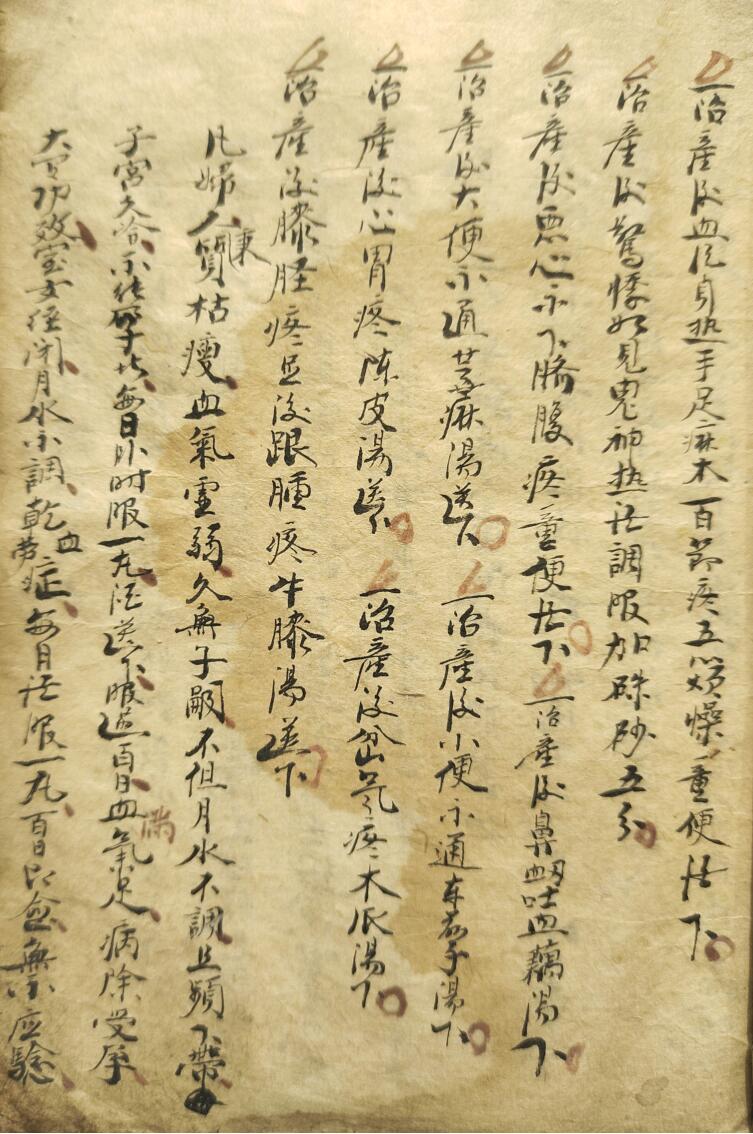 一治產後血風身热手足麻木百節疼五心煩燥童便活下
一治產後驚悸如見鬼神热活調服加硃砂五分
一治產後悪心不下臍腹疼童便活下 一治產後鼻衂吐血藕湯下
一治產後大便不通芝蔴湯送下 一治產後小便不通車前子湯下
一治產後心胃疼陳皮湯送下 一治產後岔氣疼木瓜湯下
一治產後膝脛疼足後跟腫疼牛膝湯送下
凡婦人質東枯瘦血氣虛弱久無子嗣不但月水不調且頻下帶
子宮久冷不能孕子此每日卯時服一丸酒送下服過百日血氣滿足病除受孕
大有功效室女經闭月水不調乾血劳症每月活服一丸百日即愈無不应驗